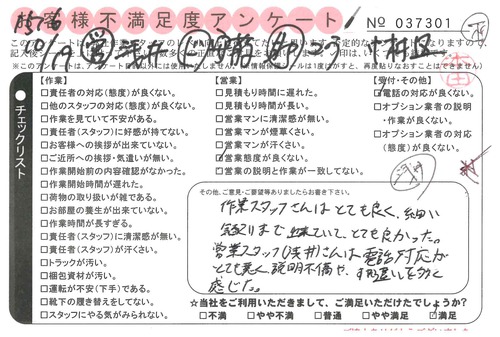 お客様不満足度アンケート
No 037301
チェックリスト
【作業】
□責任者の対応(態度)が良くない。
□他のスタッフの対応(態度)が良くない。
□作業を見ていて不安がある。
□責任者(スタッフ)に好感が持てない。
□お客様への挨拶が出来ていない。
□ご近所への挨拶・気遣いが無い。
□作業開始前の内容確認がなかった。
□作業開始時間が遅れた。
□荷物の取り扱いが雑である。
□お部屋の養生が出来ていない。
□作業時間が長すぎる。
□責任者(スタッフ)に清潔感が無い。
□責任者(スタッフ)が汗くさい。
□トラックが汚い。
□梱包資材が汚い。
□運転が不安(下手)である。
□靴下の履き替えをしてない。
□スタッフにやる気がみられない。
【営業】
□見積もり時間に遅れた。
□見積もり時間が長い。
□営業マンに清潔感が無い。
□営業マンが煙草くさい。
□営業マンが汗くさい。
☑営業態度が良くない。
□営業の説明と作業が一致してない。
【受付・その他】
☑電話の対応が良くない。
□オプション業者の説明
・作業が良くない。
□オプション業者の対応
(態度)が良くない。
その他、ご意見・ご要望等ありましたらお書き下さい。
作業スタッフさんはとても良く、細い
気配りまで出来ていて、とても良かった。
営業スタッフ(浅井)さんは電話対応が
とても悪く、説明不備や、すれ違いを多く
感じた。
☆当社をご利用いただきまして、ご満足いただけたでしょうか?
□不満 □やや不満 □普通 □やや満足 ☑満足